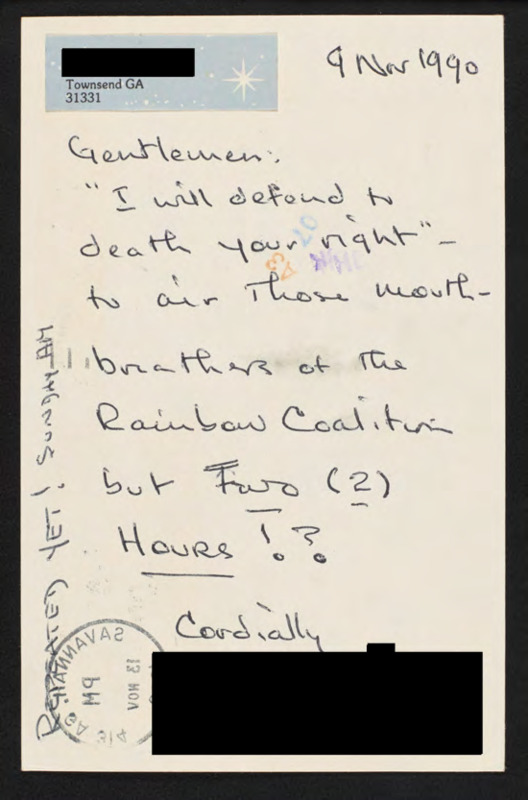 Townsend GA
31331
9 Nov 1990
Gentlemen:
"I will defend to
death your right" -
to air Those mouth-
breathers of the
Rainbow Coalition
but Two (2)
Hours !?
Cordially
REPEATED YET! SUNDAY AM
SAVANNAH
PM
13 NOV